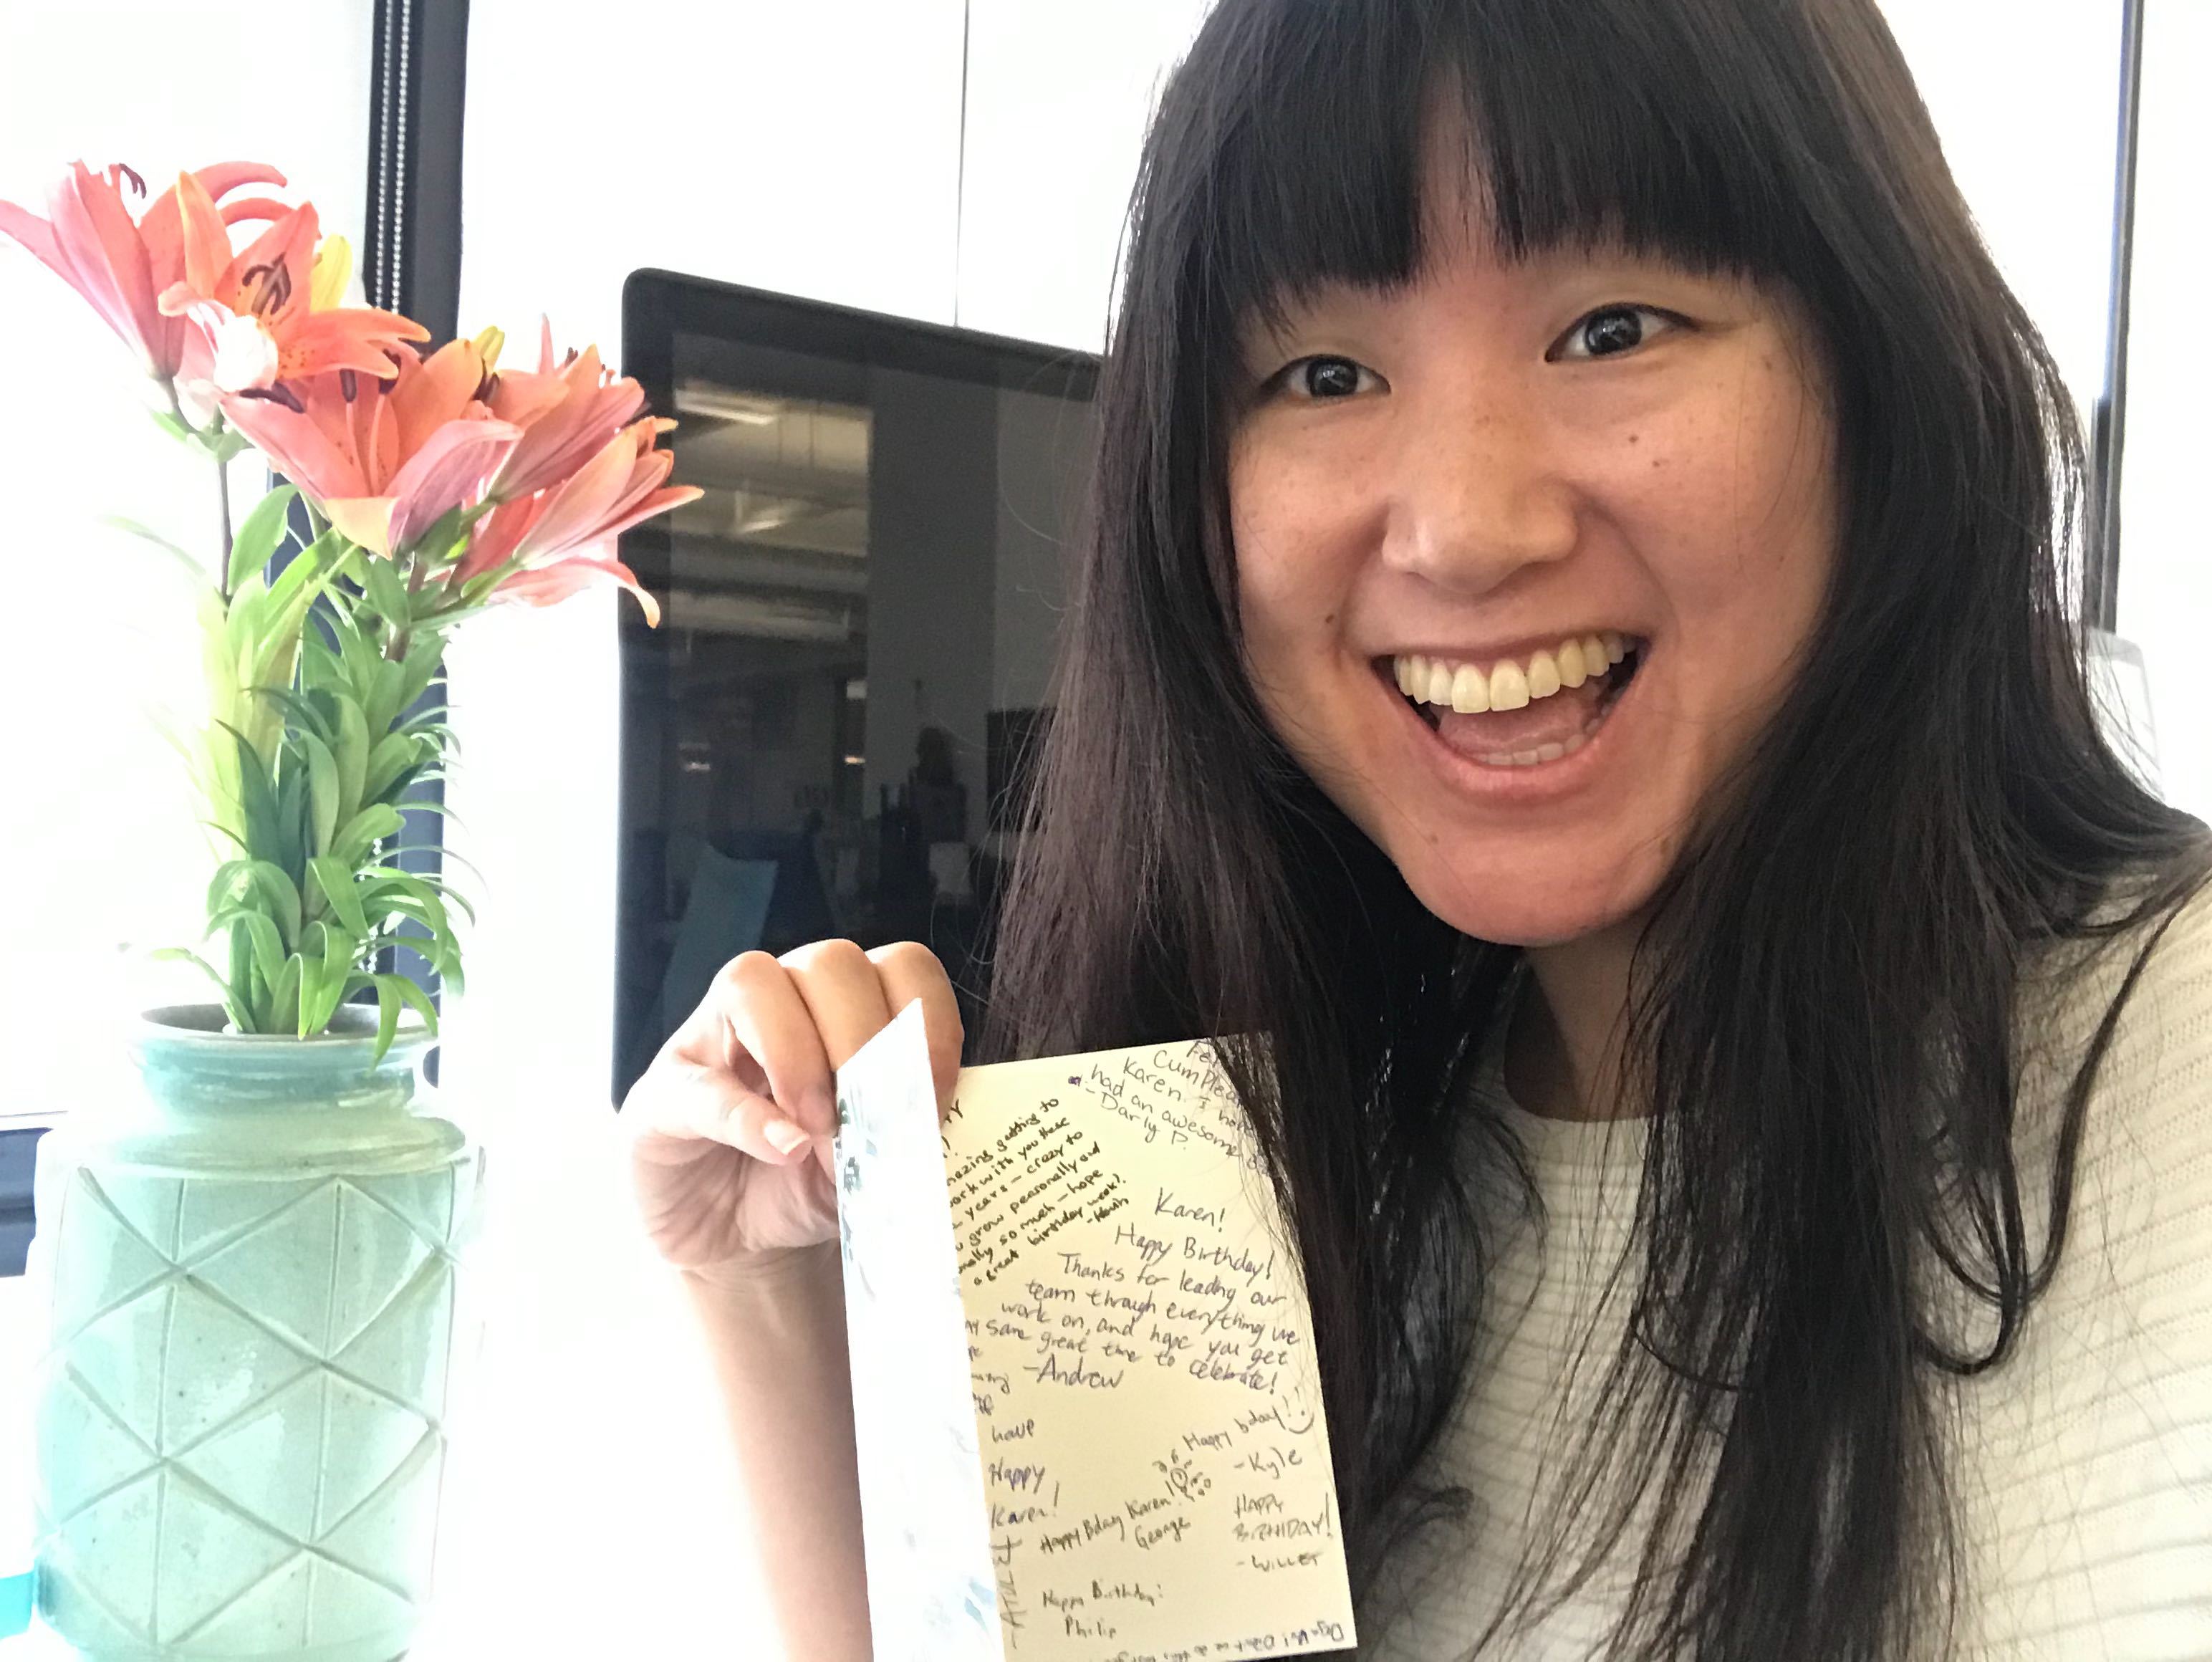 Karen. I hope
had an awesome
- Darly P.
amazing getting to
work with you these
years - crazy to
grow personally and
so much - hope
a great birthday week!
- Kevin
Karen!
Happy Birthday!
Thanks for leading our
team through everything we
work on, and hope you get
some great time to celebrate!
- Andrew
have
Happy
Karen!
Happy bday!! :)
- Kyle
Happy Bday Karen!
George
HAPPY
BIRTHDAY!
- WILLET
Happy Birthday!
Philip